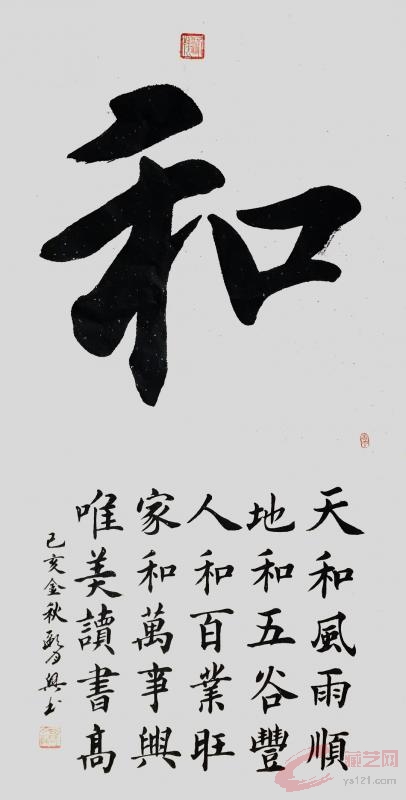 和
天和風雨順
地和五谷豐
人和百業旺
家和萬事興
唯美讀書高
己亥金秋
藏艺网
ya121.com